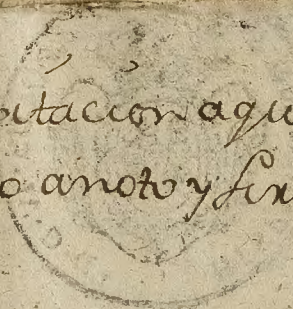 itacion aqu
o anoto y fir